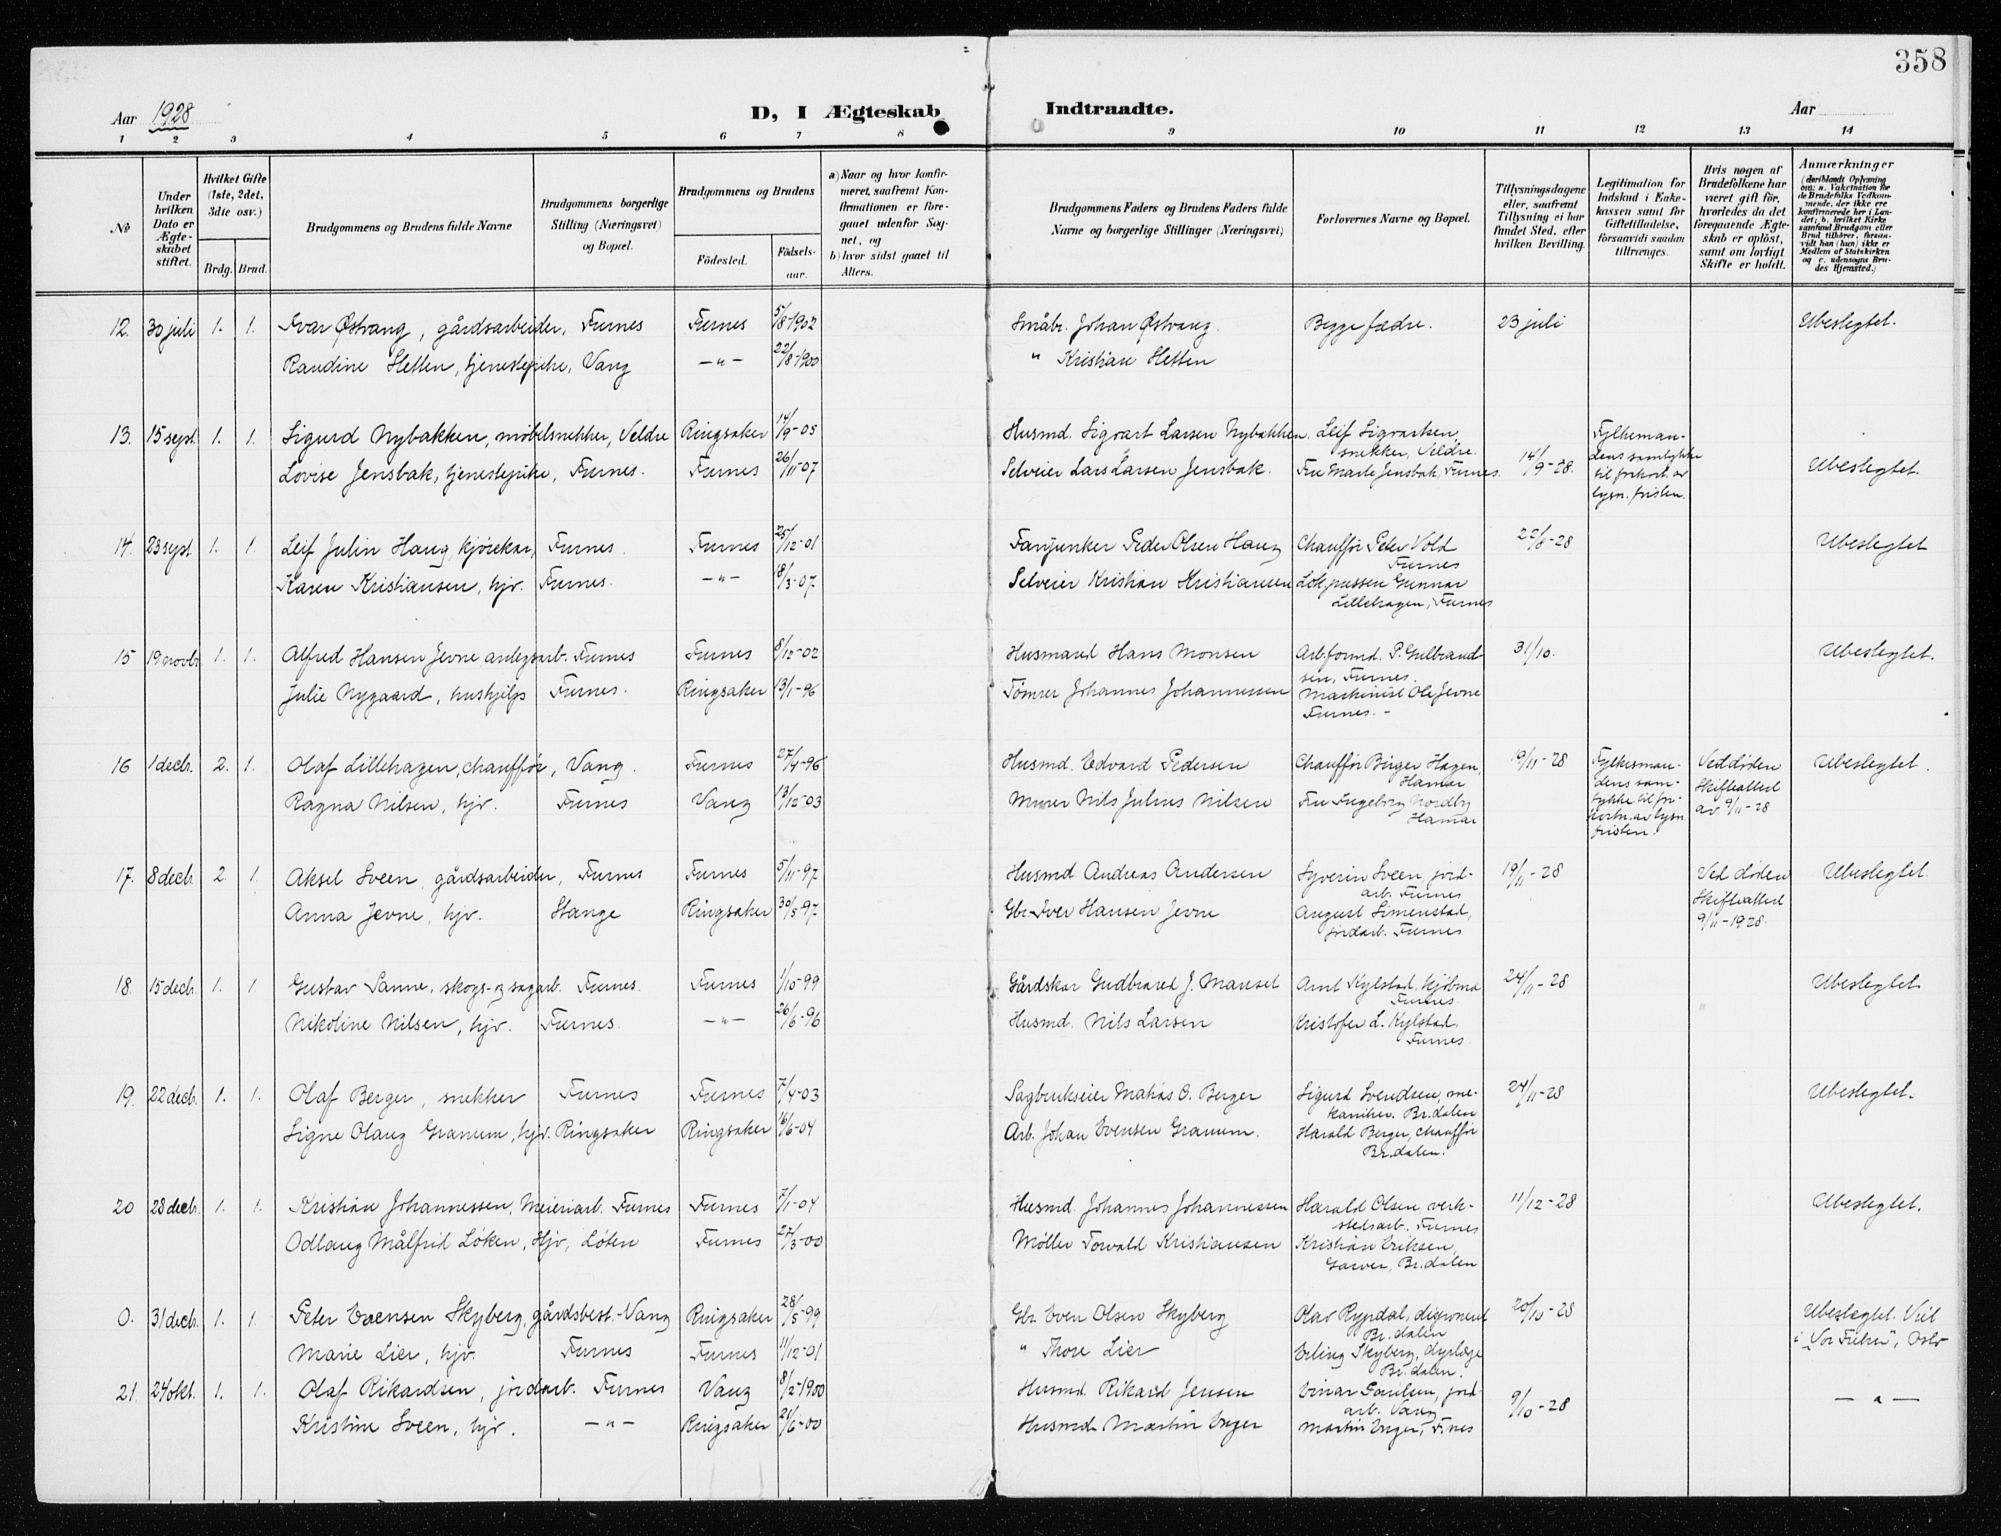 358
Aar 1928
D, I Ægteskab Indtraadte.
Aar
1 2 3 4 5 6 7 8 9 10 11 12 13 14
No
Under hvilken Dato er Ægteskabet stiftet.
Hvilket Gifte (1ste, 2det, 3die osv.)
Brdg. Brud.
Brudgommens og Brudens fulde Navne
Brudgommens borgerlige Stilling (Næringsvei) og Bopæl.
Brudgommens og Brudens
Födested. Födselsaar.
a) Naar og hvor konfirmeret, saafremt Konfirmationen er foregaaet udenfor Sognet, og
b) hvor sidst gaaet til Alters.
Brudgommens Faders og Brudens Faders fulde Navne og borgerlige Stillinger (Næringsvei)
Forlovernes Navne og Bopæl.
Tillysningsdagene eller, saafremt Tillysning ei har fundet Sted, efter hvilken Bevilling.
Legitimation for Indskud i Enkekassen samt for Giftetilladelse, forsaavidt saadan tiltrænges.
Hvis nogen af Brudefolkene har været gift før, hvorledes da det foregaaende Ægteskab er opløst, samt om lovligt Skifte er holdt.
Anmærkninger
(deriblandt Oplysning om: a. Vakcination for de Brudefolks Vedkommende, der ikke ere konfirmerede her i Landet; b. hvilket Kirkesamfund Brudgom eller Brud tilhører, forsaavidt han (hun) ikke er Medlem af Statskirken og c. udensogns Brudes Hjemsted.)
12. 30 juli 1. 1. Ivar Østvang, gårdsarbeider, Furnes Furnes 5/8-1902 Småbr. Johan Østvang. Begge fædre. 23 juli Ubeslegtet.
Randine Hetten, tjenestepike, Vang —"— 22/8-1900 " Kristian Hetten
13. 15 sept. 1. 1. Sigurd Nybakken, møbelsnekker, Veldre Ringsaker 14/9-05 Husmd. Sigvart Larsen Nybakken. Leif Sigvartsen, snekker, Veldre. 14/9-28. Fylkesmandens samtykke til forkort. av lysn. fristen. Ubeslegtet.
Lovise Jensbak, tjenestepike, Furnes. Furnes 26/11-07 Selveier Lars Larsen Jensbak. Fru Marte Jensbak, Furnes.
14. 23 sept. 1. 1. Leif Julin Haug, kjørekar, Furnes. Furnes 25/12-01 Fanejunker Peder Olsen Haug Chauffør Peter Vold Furnes 22/8-28 Ubeslegtet
Karen Kristiansen, hjv. Furnes. —"— 18/3-07 Selveier Kristian Kristiansen Lok.pusser Gunnar Lillehagen, Furnes
15 19 novbr. 1. 1. Alfred Hansen Jevne anlegsarb. Furnes Furnes 8/12-02 Husmand Hans Monsen Arb.formd. P. Gulbrandsen, Furnes. 31/10. Ubeslegtet.
Julie Nygaard, hushjelps Furnes. Ringsaker 13/1-96 Tømrer Johannes Johannessen Maskinist Ole Jevne Furnes. –
16 1 decbr. 2. 1. Olaf Lillehagen, chauffør, Vang. Furnes 27/4-96 Husmd. Edvard Pedersen Chauffør Birger Hagen, Hamar 19/11-28 Fylkesmandens samtykke til forkortn. av lysn fristen. Ved døden Skifteattest av 9/11-28 Ubeslegtet.
Ragna Nilsen, hjv. Furnes Vang 13/12-03 Murer Nils Julius Nilsen Fru Ingeborg Nordby Hamar
17. 8 decb. 2. 1. Aksel Sveen, gårdsarbeider, Furnes Furnes 5/11-97 Husmd Andreas Andersen Syverin Sveen, jordarb. Furnes 19/11-28 Ved døden Skifteattest 9/11-1928. Ubeslegtet.
Anna Jevne, hjv. Stange Ringsaker 30/5-97 Gbr. Iver Hansen Jevne August Simenstad, jordarb. Furnes
18. 15 decb. 1. 1. Gustav Sanne, skogs- og sagarb. Furnes. Furnes 1/10-99 Gårdskar Gudbrand J. Manset Arnt Kylstad, kjøbmd Furnes. 24/11-28 Ubeslegtet
Nikoline Nilsen, hjv. Furnes. —"— 26/6-96 Husmd. Nils Larsen Kristofer L. Kylstad, Furnes.
19. 22 decb. 1. 1. Olaf Berger, snekker Furnes Furnes 7/4-03 Sagbrukseier Mathias O. Berger Sigurd Svendsen, mekaniker. Br.dalen 24/11-28 Ubeslegtet.
Signe Olaug Granum, hjv. Ringsaker Ringsaker 16/6-04 Arb. Johan Evensen Granum. Harald Berger, chauffør Br.dalen.
20 28 decb. 1. 1. Kristian Johannessen, Meieriarb. Furnes Furnes 7/1-04 Husmd. Johannes Johannessen Harald Olsen, verkstedsarb. Furnes 11/12-28 Ubeslegtet.
Odlaug Målfrid Løken, Hjv, Løten Furnes 27/3-00 Møller Torvald Kristiansen Kristian Eriksen, Garver, Br.dalen
0. 31 decb. 1. 1. Peter Evensen Skyberg, gårdsbest. Vang Ringsaker 28/5-99 Gbr. Even Olsen Skyberg Olav Rypdal, disponent Br.dalen 20/10-28 Ubeslægtet. Viet i "Vor Frelser", Oslo
Marie Lier, hjv. Furnes Furnes 11/12-01 " Thore Lier Erling Skyberg, dyrlæge Br.dalen.
21. 24 okt. 1. 1. Olaf Rikardsen, jordarb. Furnes Vang 8/2-1900 Husmd. Rikard Jensen Einar Paulsen, jordarb. Vang 9/10-28 —"—
Kristine Sveen, hjv. —"— Ringsaker 21/6-00 Husmd. Martin Enger Martin Enger, F.nes